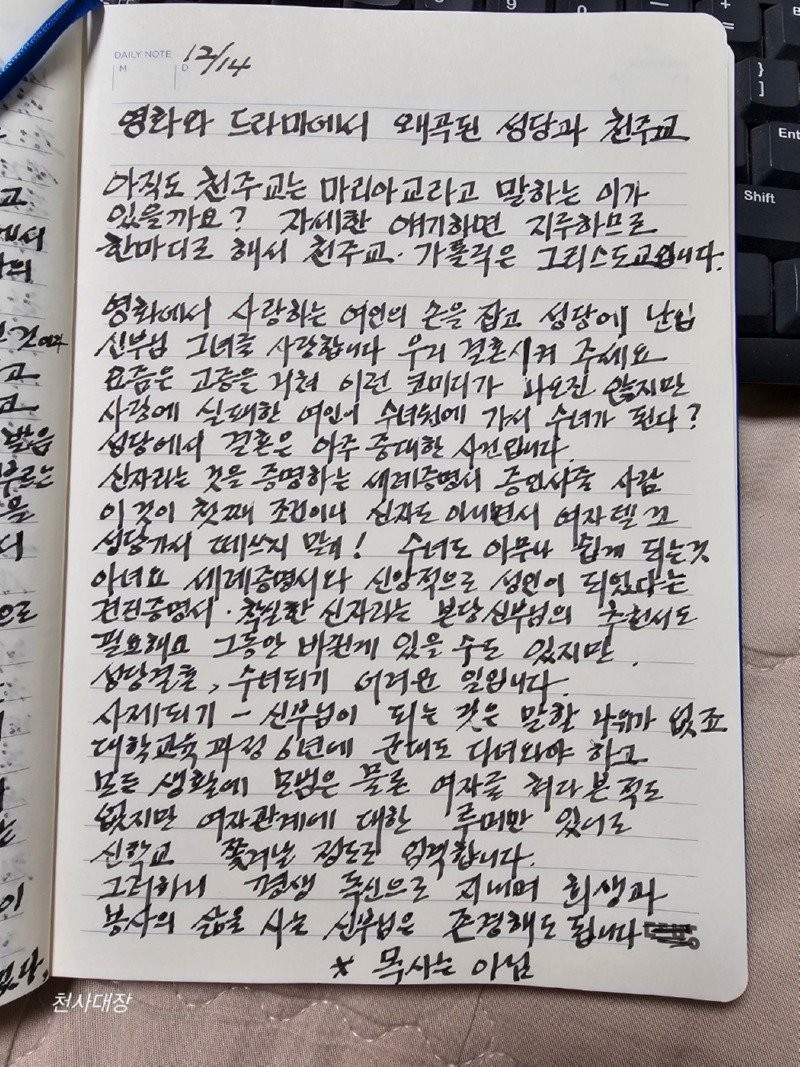 DAILY NOTE
M D 12/14
영화와 드라마에서 왜곡된 성당과 천주교
아직도 천주교는 마리아교라고 말하는 이가
있을까요? 자세한 얘기하면 지루하므로
한마디로 해서 천주교·가톨릭은 그리스도교입니다.
영화에서 사랑하는 여인의 손을 잡고 성당에 난입
신부님 그녀를 사랑합니다 우리 결혼시켜 주세요
요즘은 고증을 거쳐 이런 코미디가 나오진 않지만
사랑에 실패한 여인이 수녀원에 가서 수녀가 된다?
성당에서 결혼은 아주 중대한 사건입니다.
신자라는 것을 증명하는 세례증명서 증인서줄 사람
이것이 첫째 조건이니 신자도 아니면서 여자 델꼬
성당가서 떼쓰지 말라! 수녀도 아무나 쉽게 되는것
아녀요 세례증명서와 신앙적으로 성인이 되었다는
견진증명서·착실한 신자라는 본당신부님의 추천서도
필요해요 그동안 바뀐게 있을 수도 있지만.
성당결혼, 수녀되기 어려운 일입니다.
사제되기 - 신부님이 되는 것은 말할 나위가 없죠
대학교육과정 6년에 군대도 다녀와야 하고
모든 생활에 모범은 물론 여자를 쳐다본 적도
없지만 여자관계에 대한 루머만 있어도
신학교 쫓겨날 정도로 엄격합니다.
그러하니 평생 독신으로 지내며 희생과
봉사의 삶을 사는 신부님은 존경해도 됩니다
* 목사는 아님
천사대장
고
에서
것
고
고
말씀
으로
는
이
}
]
Ent
Shift
9
0